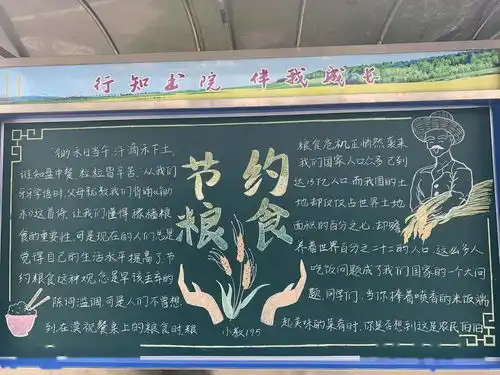 行知书院 伴我成长
"锄禾日当午,汗滴禾下土,
谁知盘中餐,粒粒皆辛苦。"从我们
牙牙学语时,父母就教我们背诵《锄
禾》这首诗,让我们懂得珍惜粮
食的重要性,可是现在的人们总是
觉得自己的生活水平提高了,节
约粮食这种观念是早该去年的
陈词滥调,可是人们不曾想
到在漠视餐桌上的粮食时,粮
节约
粮食
小教195
粮食危机正悄然袭来
我们国家人口众多已到
达13亿人口,而我国的土
地却仅仅占世界土地
面积的百分之七,却赡
养着世界百分之二十二的人口,这么多人
吃饭问题成了我们国家的一个大问
题,同学们,当你捧着喷香的米饭,端
起美味的菜肴时,你是否想到这是农民伯伯